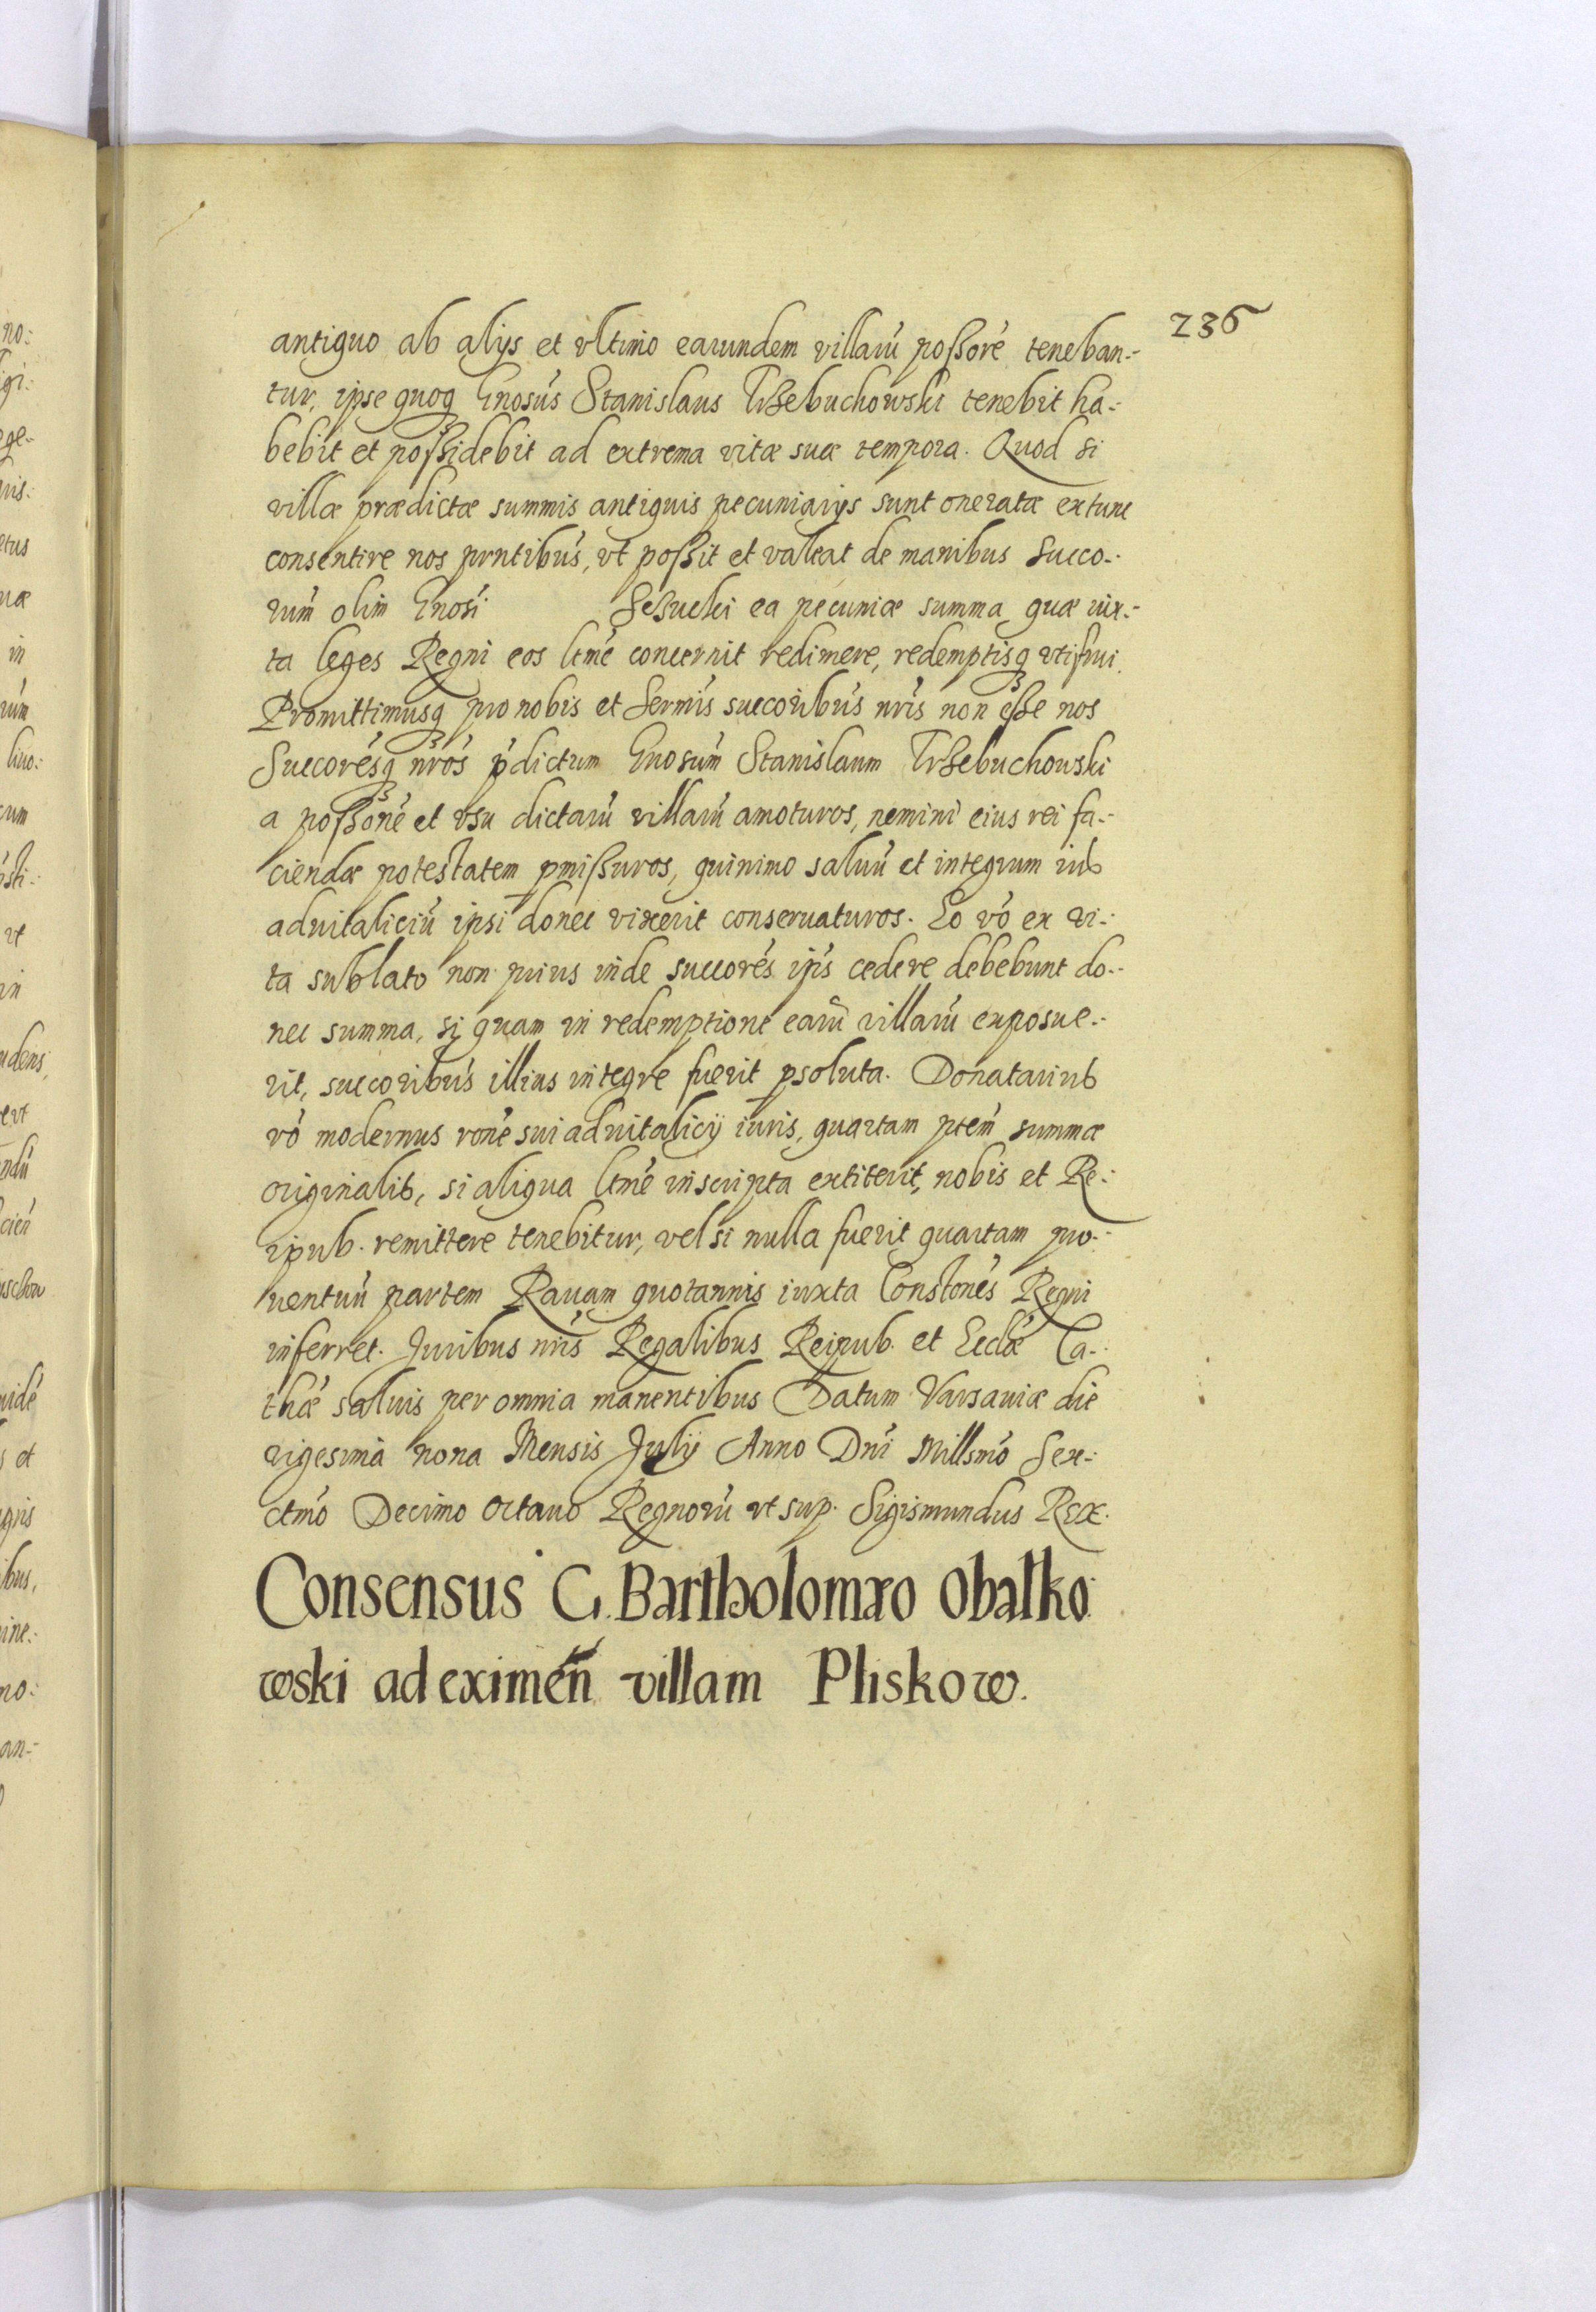 236
antiquo ab alijs et vltimo earundem villarũ possore teneban-
tur, ipse quoq Gnosus Stanislaus Trzebuchowski tenebit ha-
bebit et possidebit ad extrema vitæ suæ tempora. Quod si
villæ prædictæ summis antiquis pecuniarijs sunt oneratæ extunc
consentire nos prntibus, vt possit et valeat de manibus succo-
rum olim Gnosi ea pecuniæ summa, quæ iux-
ta leges Regni eos ltme concernit redimere, redemptisq vtifrui.
Promittimusq pro nobis et Sermis succoribus nris non esse nos
Succoresq nros pdictum Gnosum Stanislaum Trzebuchowski
a possone et vsu dictarũ villarũ amoturos, nemini eius rei fa-
ciendæ potestatem pmissuros, quinimo saluũ et integrum ius
aduitaliciũ ipsi donec vixerit conseruaturos. Eo vo ex vi-
ta sublato non prius inde succores ips cedere debebunt do-
nec summa, si quam in redemptione earũ villarũ exposue-
rit, succoribus illius integre fuerit psoluta. Donatarius
vo modernus rone sui aduitalicij iuris, quartam ptem summæ
originalis, si aliqua ltme inscripta extiterit, nobis et Re-
ipub. remittere tenebitur, vel si nulla fuerit quartam pro-
uentuũ partem Rauam quotannis iuxta Constones Regni
inferret. Juribus nris Regalibus Reipub. et Eccłæ Ca-
thæ saluis per omnia manentibus Datum Varsauiæ die
vigesima nona Mensis Julij Anno Dni Millsmo Sex-
ctmo Decimo octauo Regnorũ vt sup. Sigismundus Rex.
Consensus G. Bartholomæo Obałko
wski ad eximen villam Pliskow.